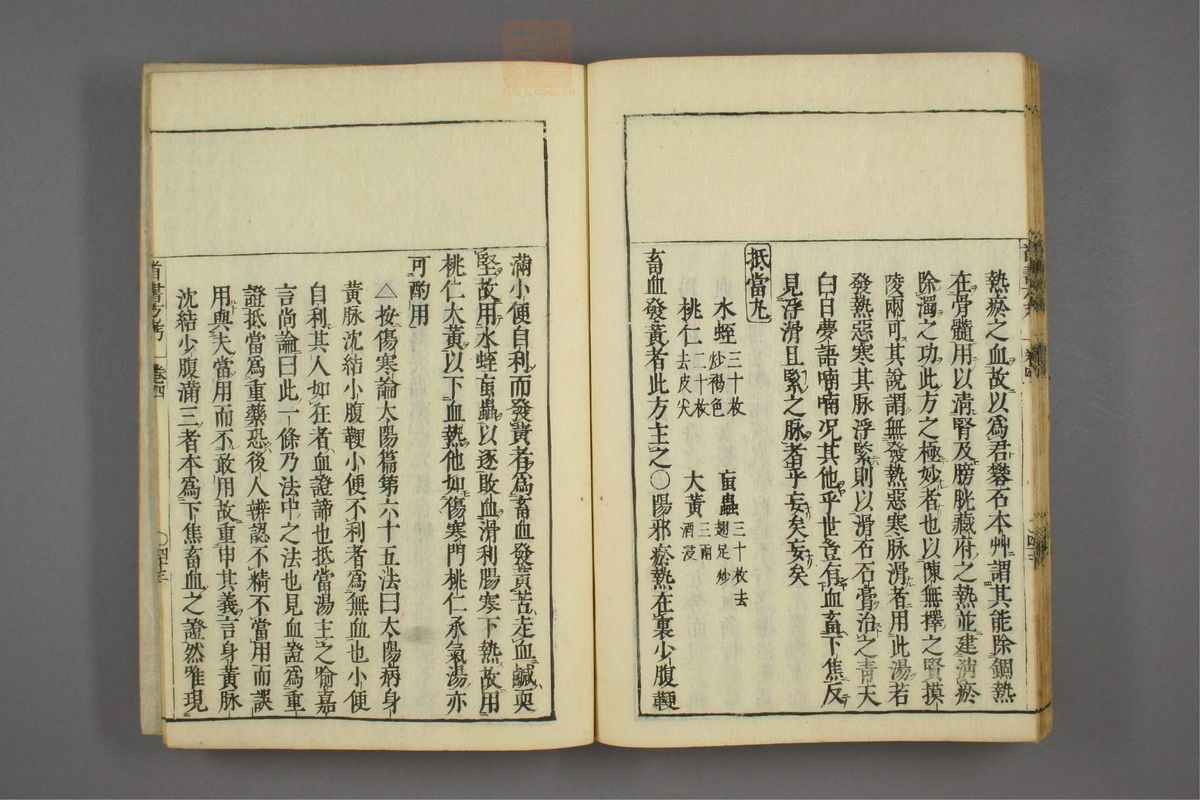 熱瘀之血故以爲君礬石本艸謂其能除錮熱
在骨髓用以淸腎及膀胱藏府之熱並建消瘀
除濁之功此方之極妙者也以陳無擇之賢摸
陵兩可其說謂無發熱惡寒脉滑者用此湯若
發熱惡寒其脉浮緊則以滑石石膏治之靑天
白日夢語喃喃况其他乎世豈有血畜下焦反
見浮滑且緊之脉者乎妄矣妄矣
抵當丸
水蛭三十枚炒褐色 䖟蟲三十枚去翅足炒
桃仁二十枚去皮尖 大黃三兩酒浸
畜血發黃者此方主之○陽邪瘀熱在裏少腹鞕
滿小便自利而發黃者爲畜血發黃苦走血鹹耎
堅故用水蛭䖟蟲以逐敗血滑利腸寒下熱故用
桃仁大黃以下血熱他如傷寒門桃仁承氣湯亦
可酌用
△按傷寒論太陽篇第六十五法曰太陽病身
黃脉沈結小腹鞕小便不利者爲無血也小便
自利其人如狂者血證諦也抵當湯主之喻嘉
言尚論曰此一條乃法中之法也見血證爲重
證抵當爲重藥恐後人辨認不精不當用而誤
用與夫當用而不敢用故重申其義言身黃脉
沈結少腹滿三者本爲下焦畜血之證然雖現
卷四